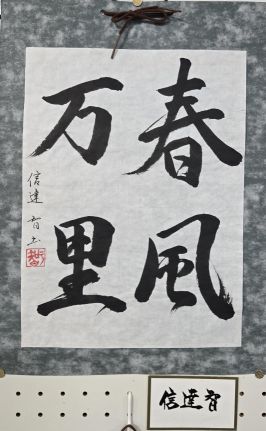 春風
万里
信達 智
信達智